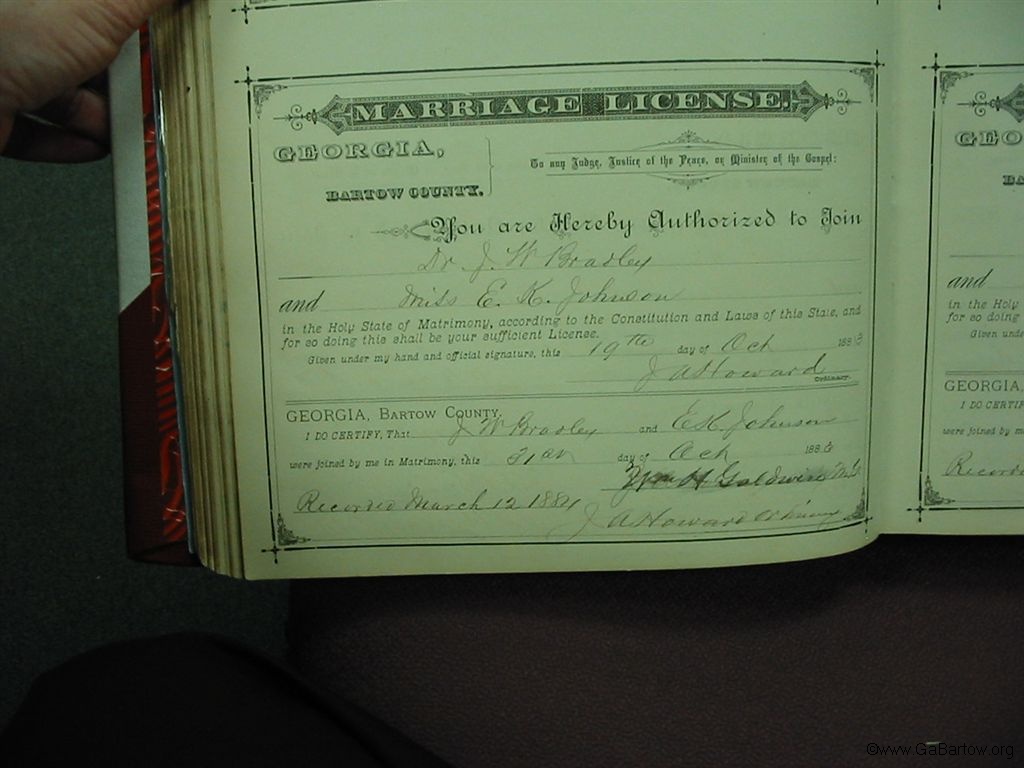 MARRIAGE LICENSE.
GEORGIA,
BARTOW COUNTY.
To any Judge, Justice of the Peace, or Minister of the Gospel:
You are Hereby Authorized to Join
Dr. J. W Bradley
and Miss E. K. Johnson
in the Holy State of Matrimony, according to the Constitution and Laws of this State, and
for so doing this shall be your sufficient License.
Given under my hand and official signature, this 19th day of Oct 1883
J A Howard
Ordinary.
GEORGIA, BARTOW COUNTY.
I DO CERTIFY, That J W Bradley and E K. Johnson
were joined by me in Matrimony, this 21st day of Oct 1883
Wm H Goldwire M.G
Recorded March 12 1884
J A Howard Ordinary
GEO
BA
and
in the Holy
for so doing
Given unde
GEORGIA,
I DO CERTIF
were joined by m
Recorde
©www.GaBartow.org